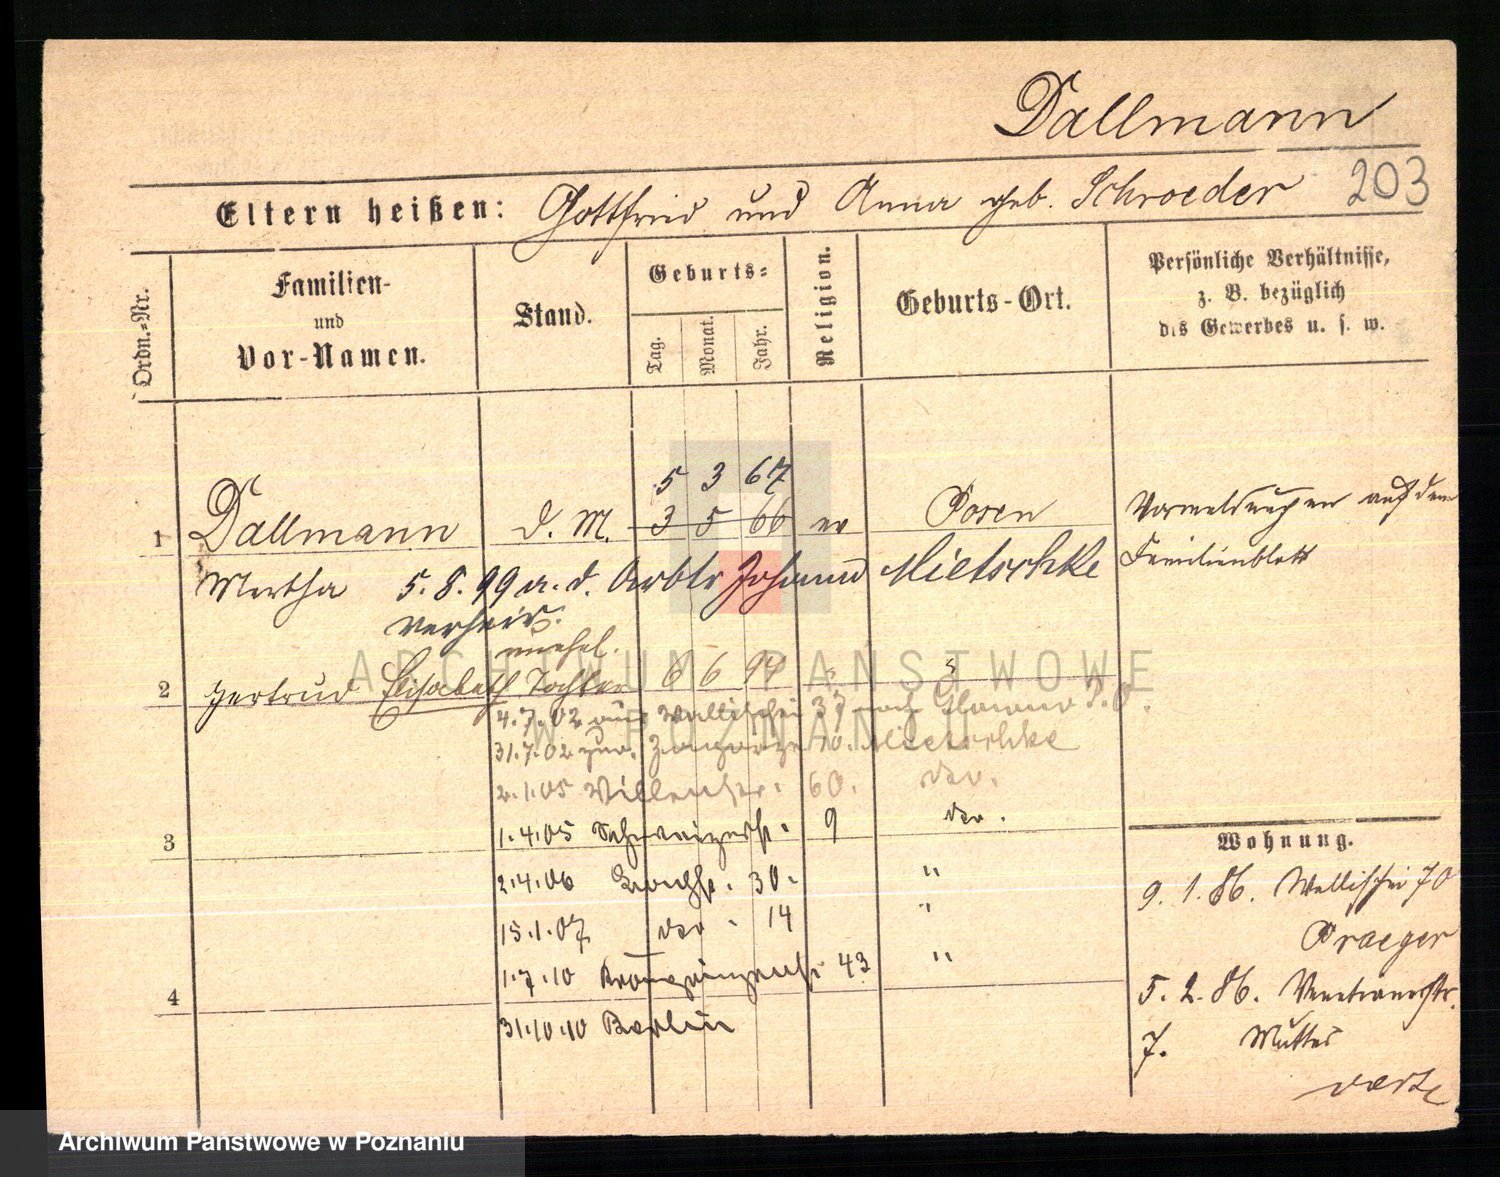 Dallmann
203
Eltern heißen: Gottfried und Anna geb. Schroeder
Ordn.-Nr.
Familien-
und
Vor-Namen.
Stand.
Geburts-
Tag.
Monat.
Jahr.
Religion.
Geburts-Ort.
Persönliche Verhältnisse,
z. B. bezüglich
des Gewerbes u. s. w.
5 3 67
1 Dallmann d. M. 3 5 66 ev Posen
Vormeldungen auf dem
Familienblatt
Martha 5. 8. 99 a. d. Arbtr Johann Mietschke
verheir.
unehel.
2 Gertrud Elisabeth Tochter 6 6 94
4.7.02 aus Wallischei 37 nach Glowno P.O.
31.7.02 zur. Mietschke
2.1.05 60. der.
1.4.05 Schweizerstr. 9 der.
3
2.4.06 30. "
15.1.07 der 14 "
1.7.10 Kronprinzenstr 43 "
4
31.10.10 Berlin
Wohnung.
9. 1. 86. Wallischei 70
Praeger
5. 2. 86. Venetianerstr.
7. Mutter
verte
ARCHIWUM PAŃSTWOWE
W POZNANIU
Archiwum Państwowe w Poznaniu